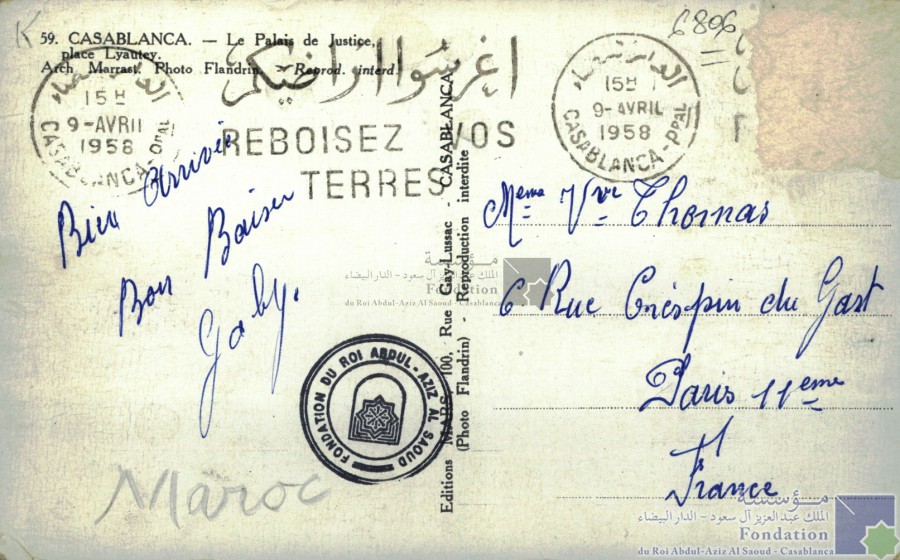 K
59. CASABLANCA. — Le Palais de Justice,
place Lyautey.
Arch Marrast. Photo Flandrin. — Reprod. interd.
الدار البيضاء
15H
9-AVRIL
1958
CASABLANCA-PPAL
اغرسوا اراضيكم
REBOISEZ VOS
TERRES
6806
الدار البيضاء
15H
9-AVRIL
1958
CASABLANCA-PPAL
Bien Arrivée
Bon Baiser
Gaby.
Maroc
FONDATION DU ROI ABDUL-AZIZ AL SAOUD
Editions MARS, 100, Rue Gay-Lussac - CASABLANCA
(Photo Flandrin) - Reproduction interdite
Meme Vve Thomas
6 Rue Crespin du Gast
Paris 11eme
France
مؤسسة
الملك عبد العزيز آل سعود - الدار البيضاء
Fondation
du Roi Abdul-Aziz Al Saoud - Casablanca
مؤسسة
الملك عبد العزيز آل سعود - الدار البيضاء
Fondation
du Roi Abdul-Aziz Al Saoud - Casablanca